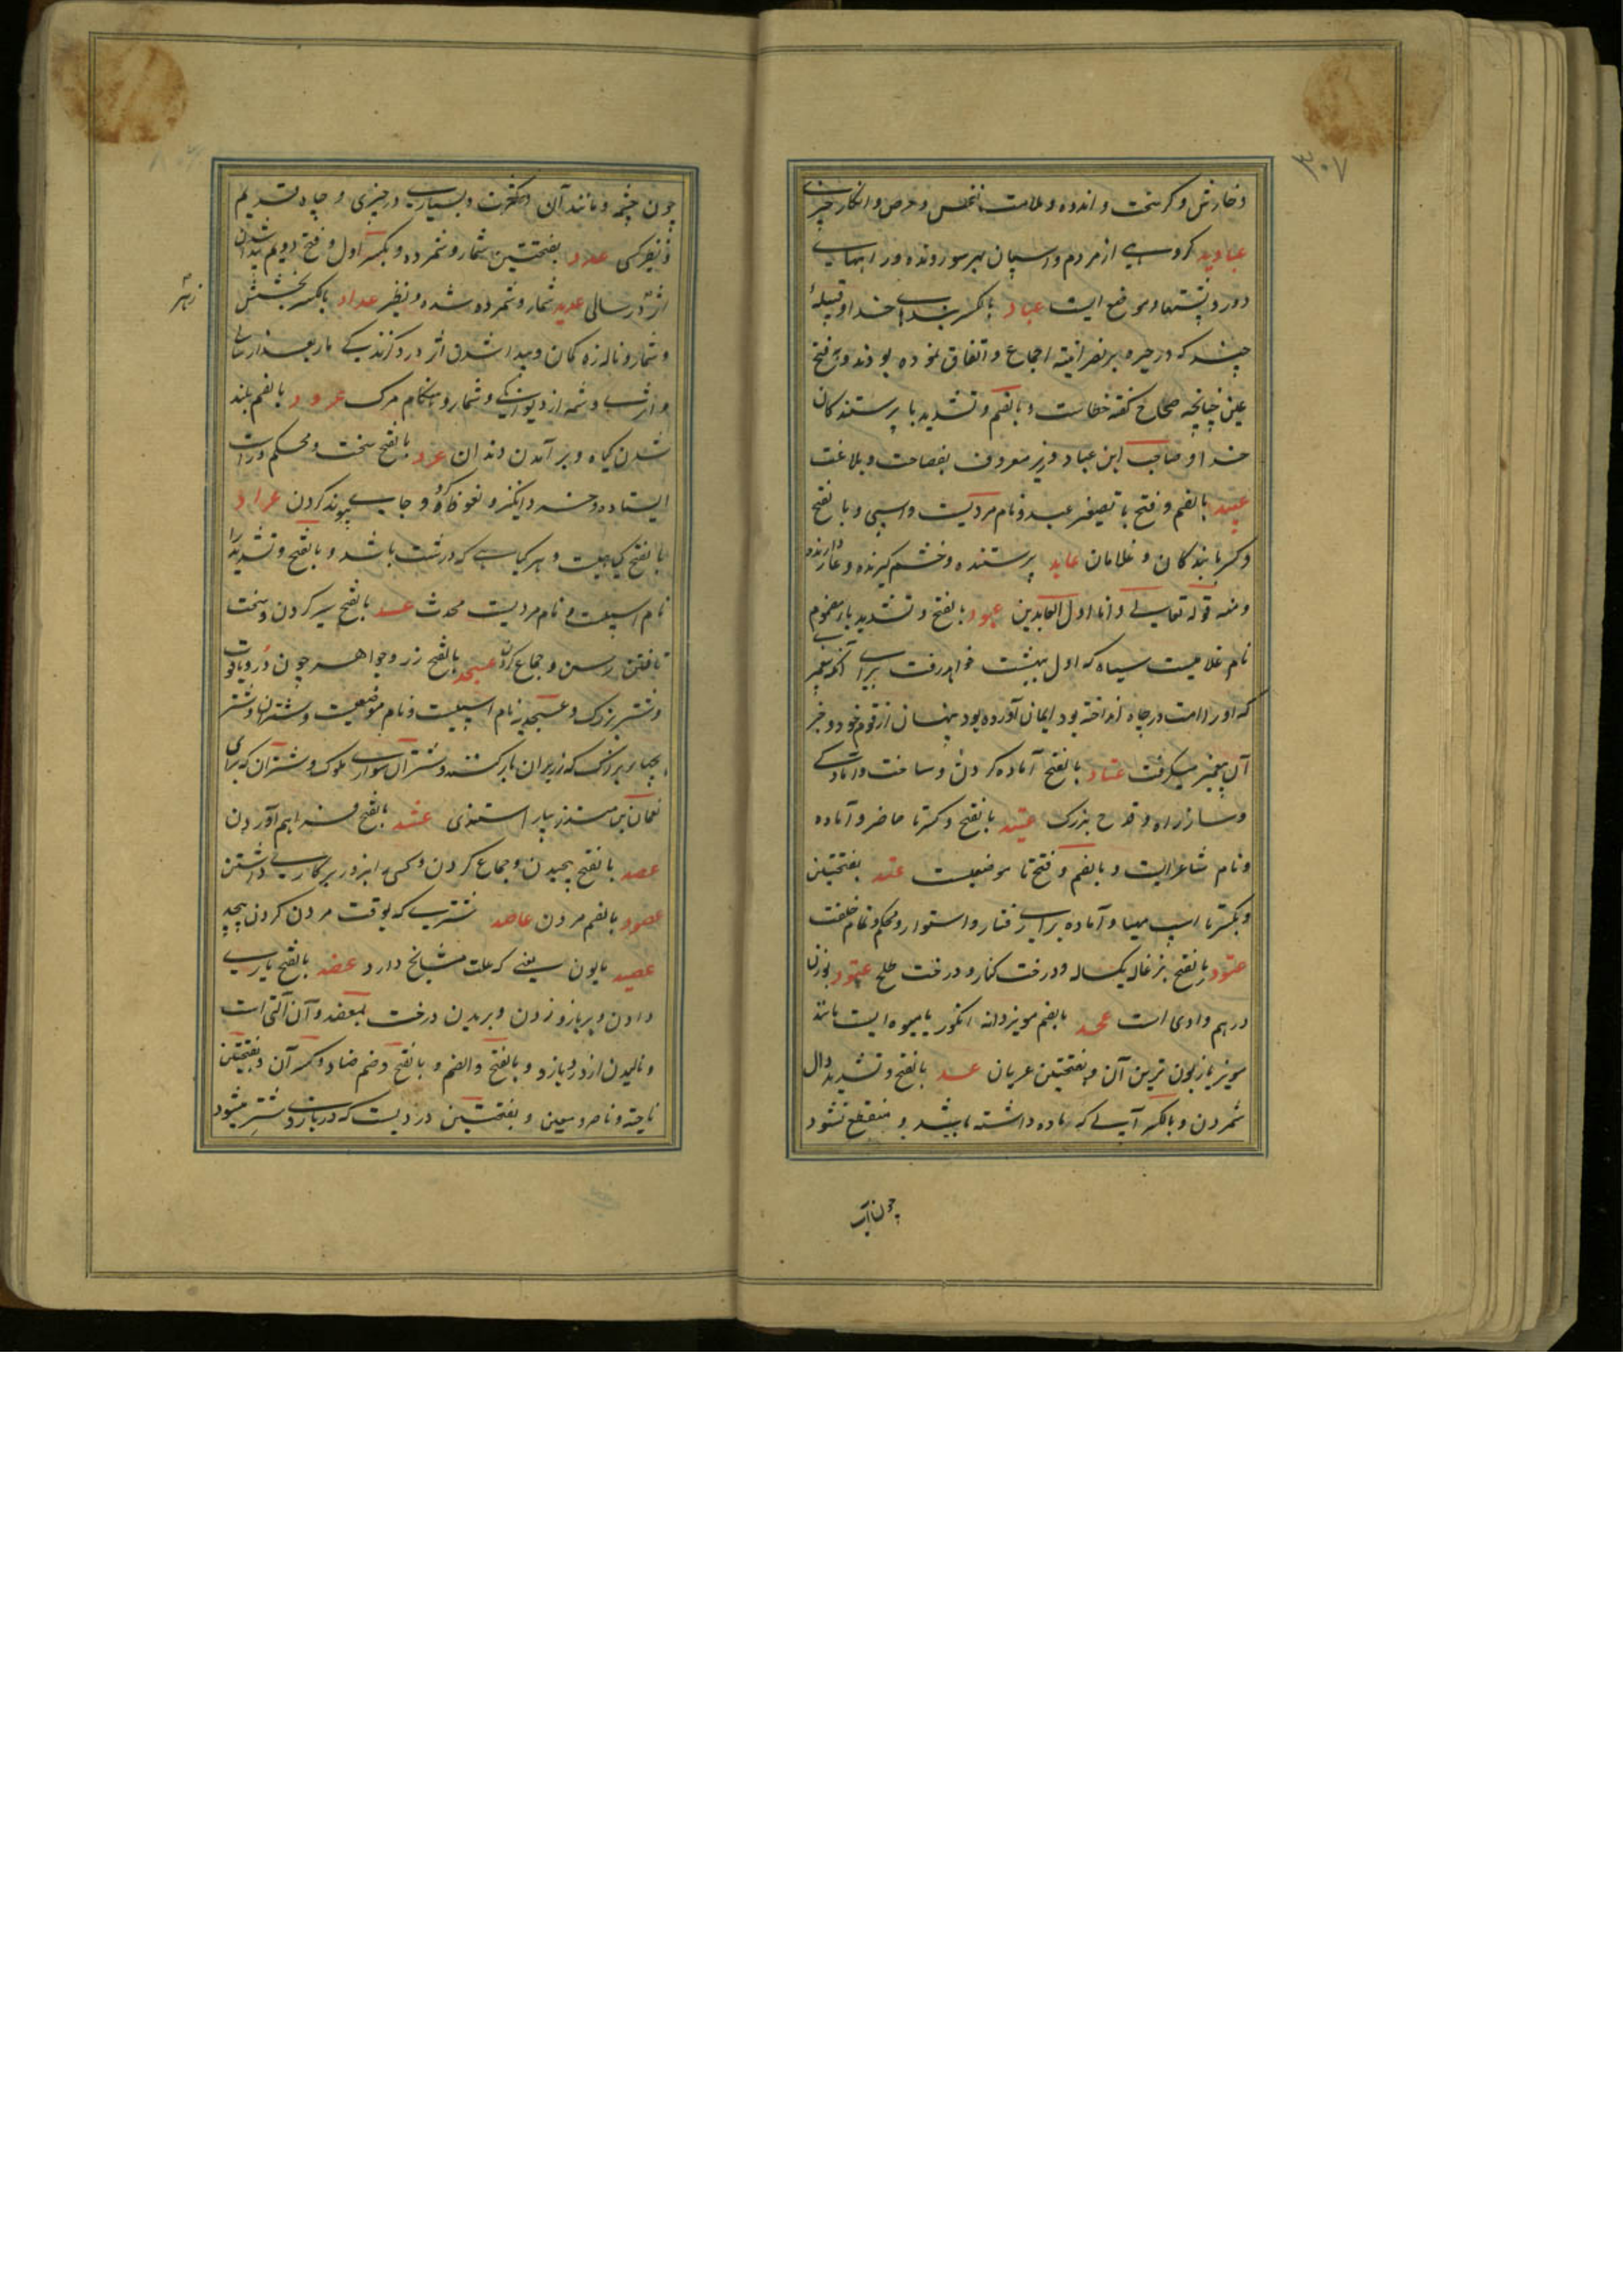 ۳۰۷
و خارش و کر سخت و اندوه و ملامت نفس و حرص و انکار چیزی
عبادید گروهی از مردم و اسپان بهر سو رونده و راههای
دور و پشتها و موضعی است عباد بالکسر بندهای خدا و قبیلهٔ
چند که در حیره بر نصرانیة اجماع و اتفاق نموده بودند و بفتح
عین چنانچه صحاح گفته خطاست و بالضم و تشدید با پرستندکان
خدا و صاحب ابن عباد وزیر معروف بفصاحت و بلاغت
عبید بالضم و فتح با تصغیر عبد و نام مردیست و اسپی و بالفتح
و کسر با بندکان و غلامان عابد پرستنده و خشم گیرنده و عار دارنده
و منه قوله تعالی و انا اول العابدین عبود بالفتح و تشدید باء مضموم
نام غلامیست سیاه که اول ببهشت خواهد رفت برای آنکه پیغمبری
که او را امت در چاه انداخته بود ایمان آورده بود پنهان از قوم خود و خبر
آن پیغمبر میگرفت عتاد بالفتح آماده کردن و ساخت و آمادگی
و ساز راه و قدح بزرک عتید بالفتح و کسر تا حاضر و آماده
و نام شاعریست و بالضم و فتح تا موضعیست عتد بفتحتین
و بکسر تا اسپ مهیا و آماده برای رفتار و استوار و محکم و تمام خلقت
عتود بالفتح بزغاله یکساله و درخت کنار و درخت طلح عتود بوزن
درهم وادی است عجد بالضم مویز دانه انکور یا میوه ایست مانند
مویز یا زبون ترین آن و بفتحتین عریان عد بالفتح و تشدید دال
شمردن و بالکسر آبی که ماده داشته باشد و منقطع نشود
چون آب
چون چشمه و مانند آن و کثرت و بسیاری در چیزی و چاه قدیم
و نظیر کسی عدد بفتحتین شمار و شمرده و بکسر اول و فتح دویم پیدا شدن
اثر در سالی عدید شمار و شمرده شده و نظیر عداد بالکسر بخشش
و شمار و ناله زه کمان و پیدا شدن اثر درد گزندکی مار بعد از سالی
و اثر شب و شمه از دیوانکی و شمار و هنکام مرک عرود بالضم بلند
شدن کیاه و بر آمدن دندان عرد بالفتح سخت و محکم و راست
ایستاده و خر و انگیزه و نعوظ کرده و جای پیوند کردن عراد
بالفتح کیاهیست و هر کیاهی که درشت باشد و بالفتح و تشدید را
نام اسپیست و نام مردیست محدث عسد بالفتح سیر کردن و سخت
تافتن رسن و جماع کردن عسجد بالفتح زر و جواهر چون در و یاقوت
و شتر بزرک و عسجدیه نام اسپیست و نام موضعیست و شترانی و شتر
بچهای بزرک که زیر آن بار کشند و شتران سواری ملوک و شتران که برای
نعمان بن منذر بیاراستندی عشد بالفتح فراهم آوردن
عصد بالفتح پیچیدن و جماع کردن و کسی را بزور بر کاری داشتن
عصود بالضم مردن عاصد شتری که بوقت مردن گردن پیچد
عصید بوزن یعنی که علت مشایخ دارد عضد بالفتح یاری
دادن و بر بازو زدن و بریدن درخت بمعضد و آن آلتی است
و نالیدن از درد بازو و بالفتح و الضم و بالفتح و ضم ضاد و کسر آن و بفتحتین
ناحیه و ناصر و معین و بفتحتین دردیست که در بازوی شتر میشود